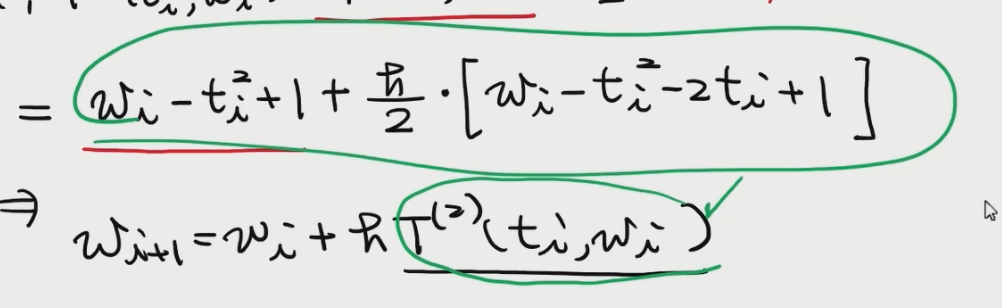 = wᵢ - tᵢ² + 1 + h/2 · [wᵢ - tᵢ² - 2tᵢ + 1]
⇒ wᵢ₊₁ = wᵢ + h T⁽²⁾(tᵢ, wᵢ)